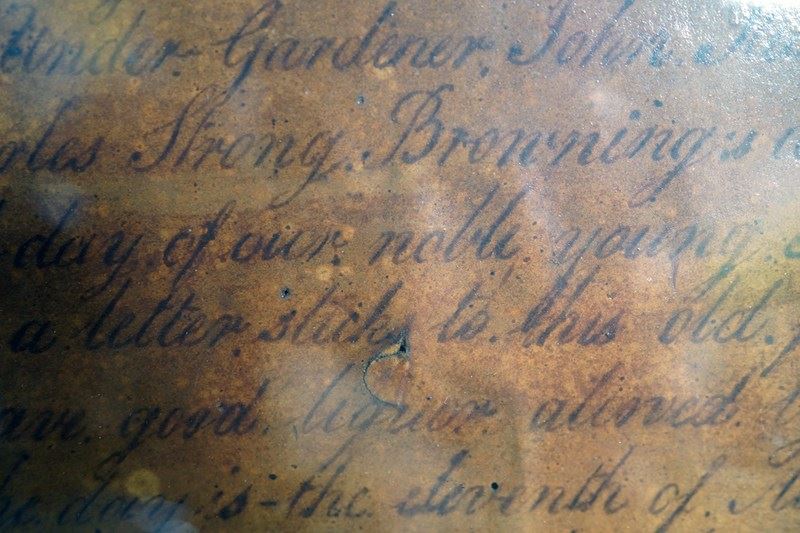 Under Gardener, John.
rles Strong. Browning's
day of our nobl young
a letter sticks to this old.
ave good liquor alowed.
he day is - the eleventh of